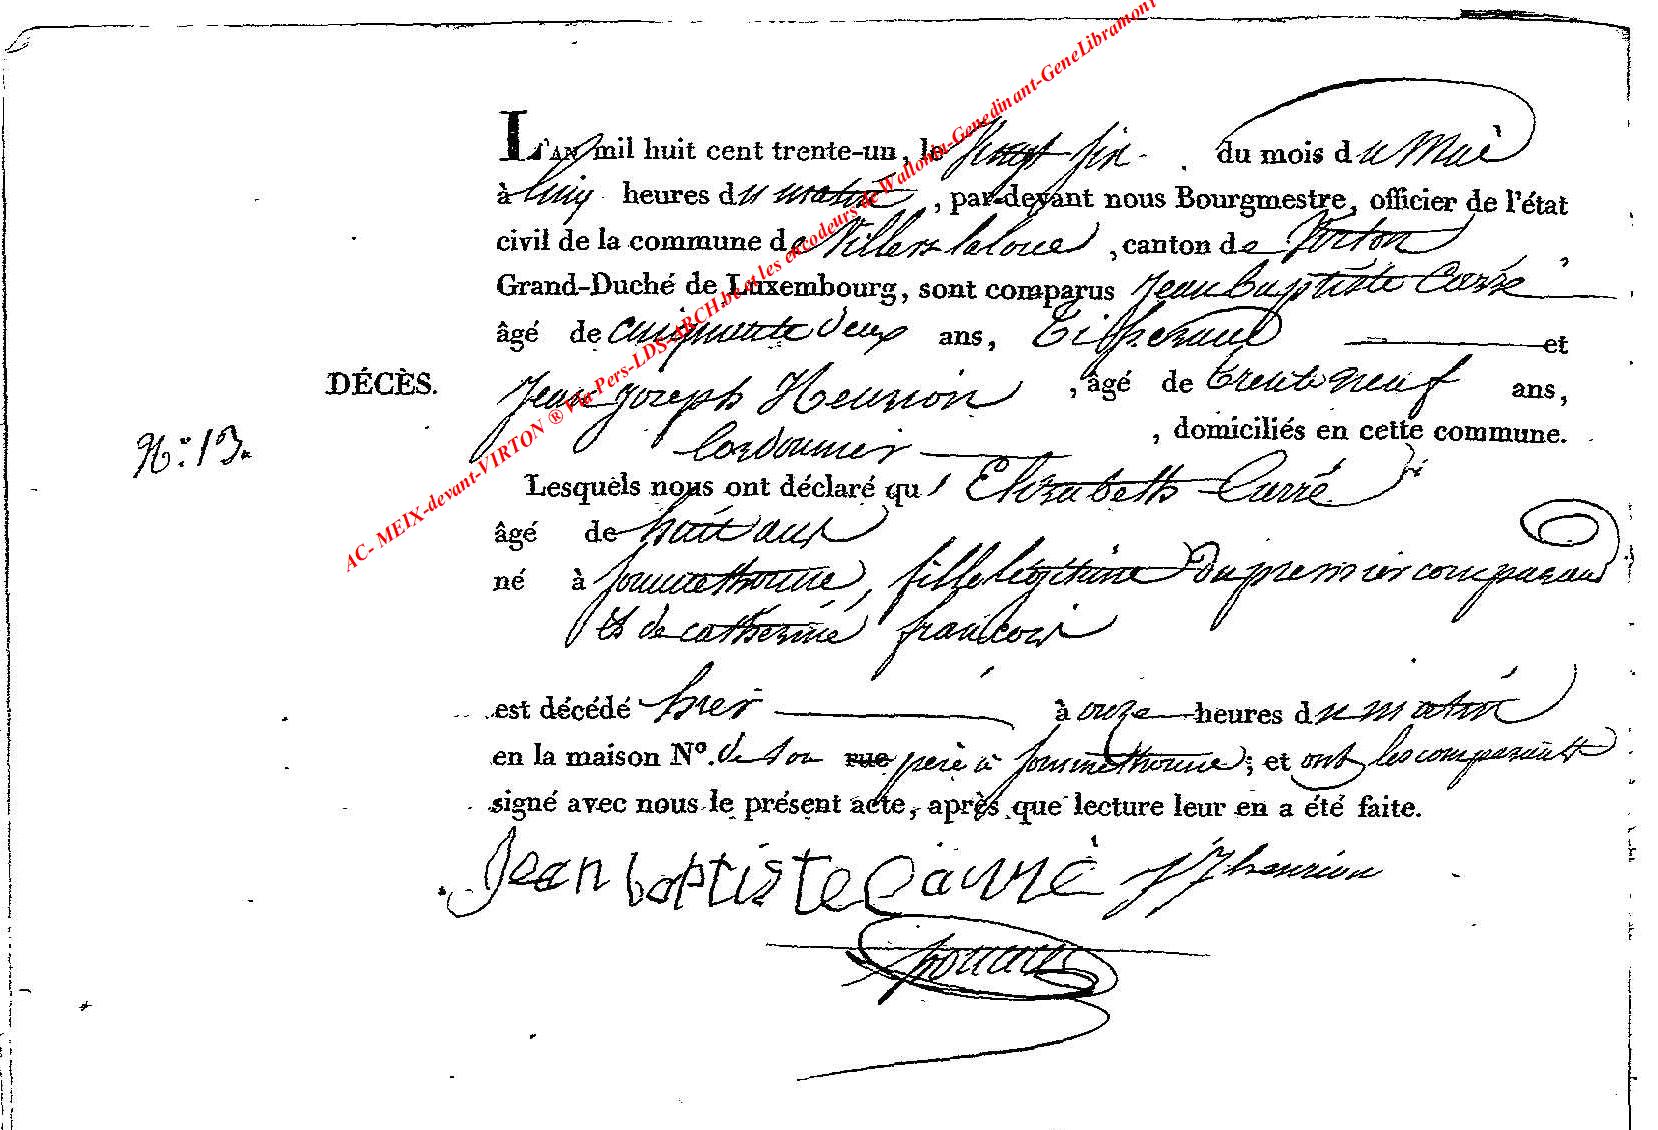 AC- MEIX-devant-VIRTON ® Via-Pers-LDS-ARCH.be et les encodeurs de Wallonia-Genedinant-GeneLibramont
L'AN mil huit cent trente-un, le Vingt six du mois du Mai
à cinq heures du matin, par-devant nous Bourgmestre, officier de l'état
civil de la commune de Villers laloue, canton de Virton
Grand-Duché de Luxembourg, sont comparus Jean baptiste Carré
âgé de cinquante deux ans, Tisserand et
DÉCÈS.
Jean joseph Henrion, âgé de trente neuf ans,
N.º 13.
Cordonnier, domiciliés en cette commune.
Lesquels nous ont déclaré qu' Elizabeth Carré
âgé de huit ans
né à sommethonne, fille légitime du premier comparant
et de catherine francois
est décédé hier à onze heures du matin
en la maison Nº. de son rue père à sommethonne; et ont les comparants
signé avec nous le présent acte, après que lecture leur en a été faite.
Jean baptiste Carré JJ henrion